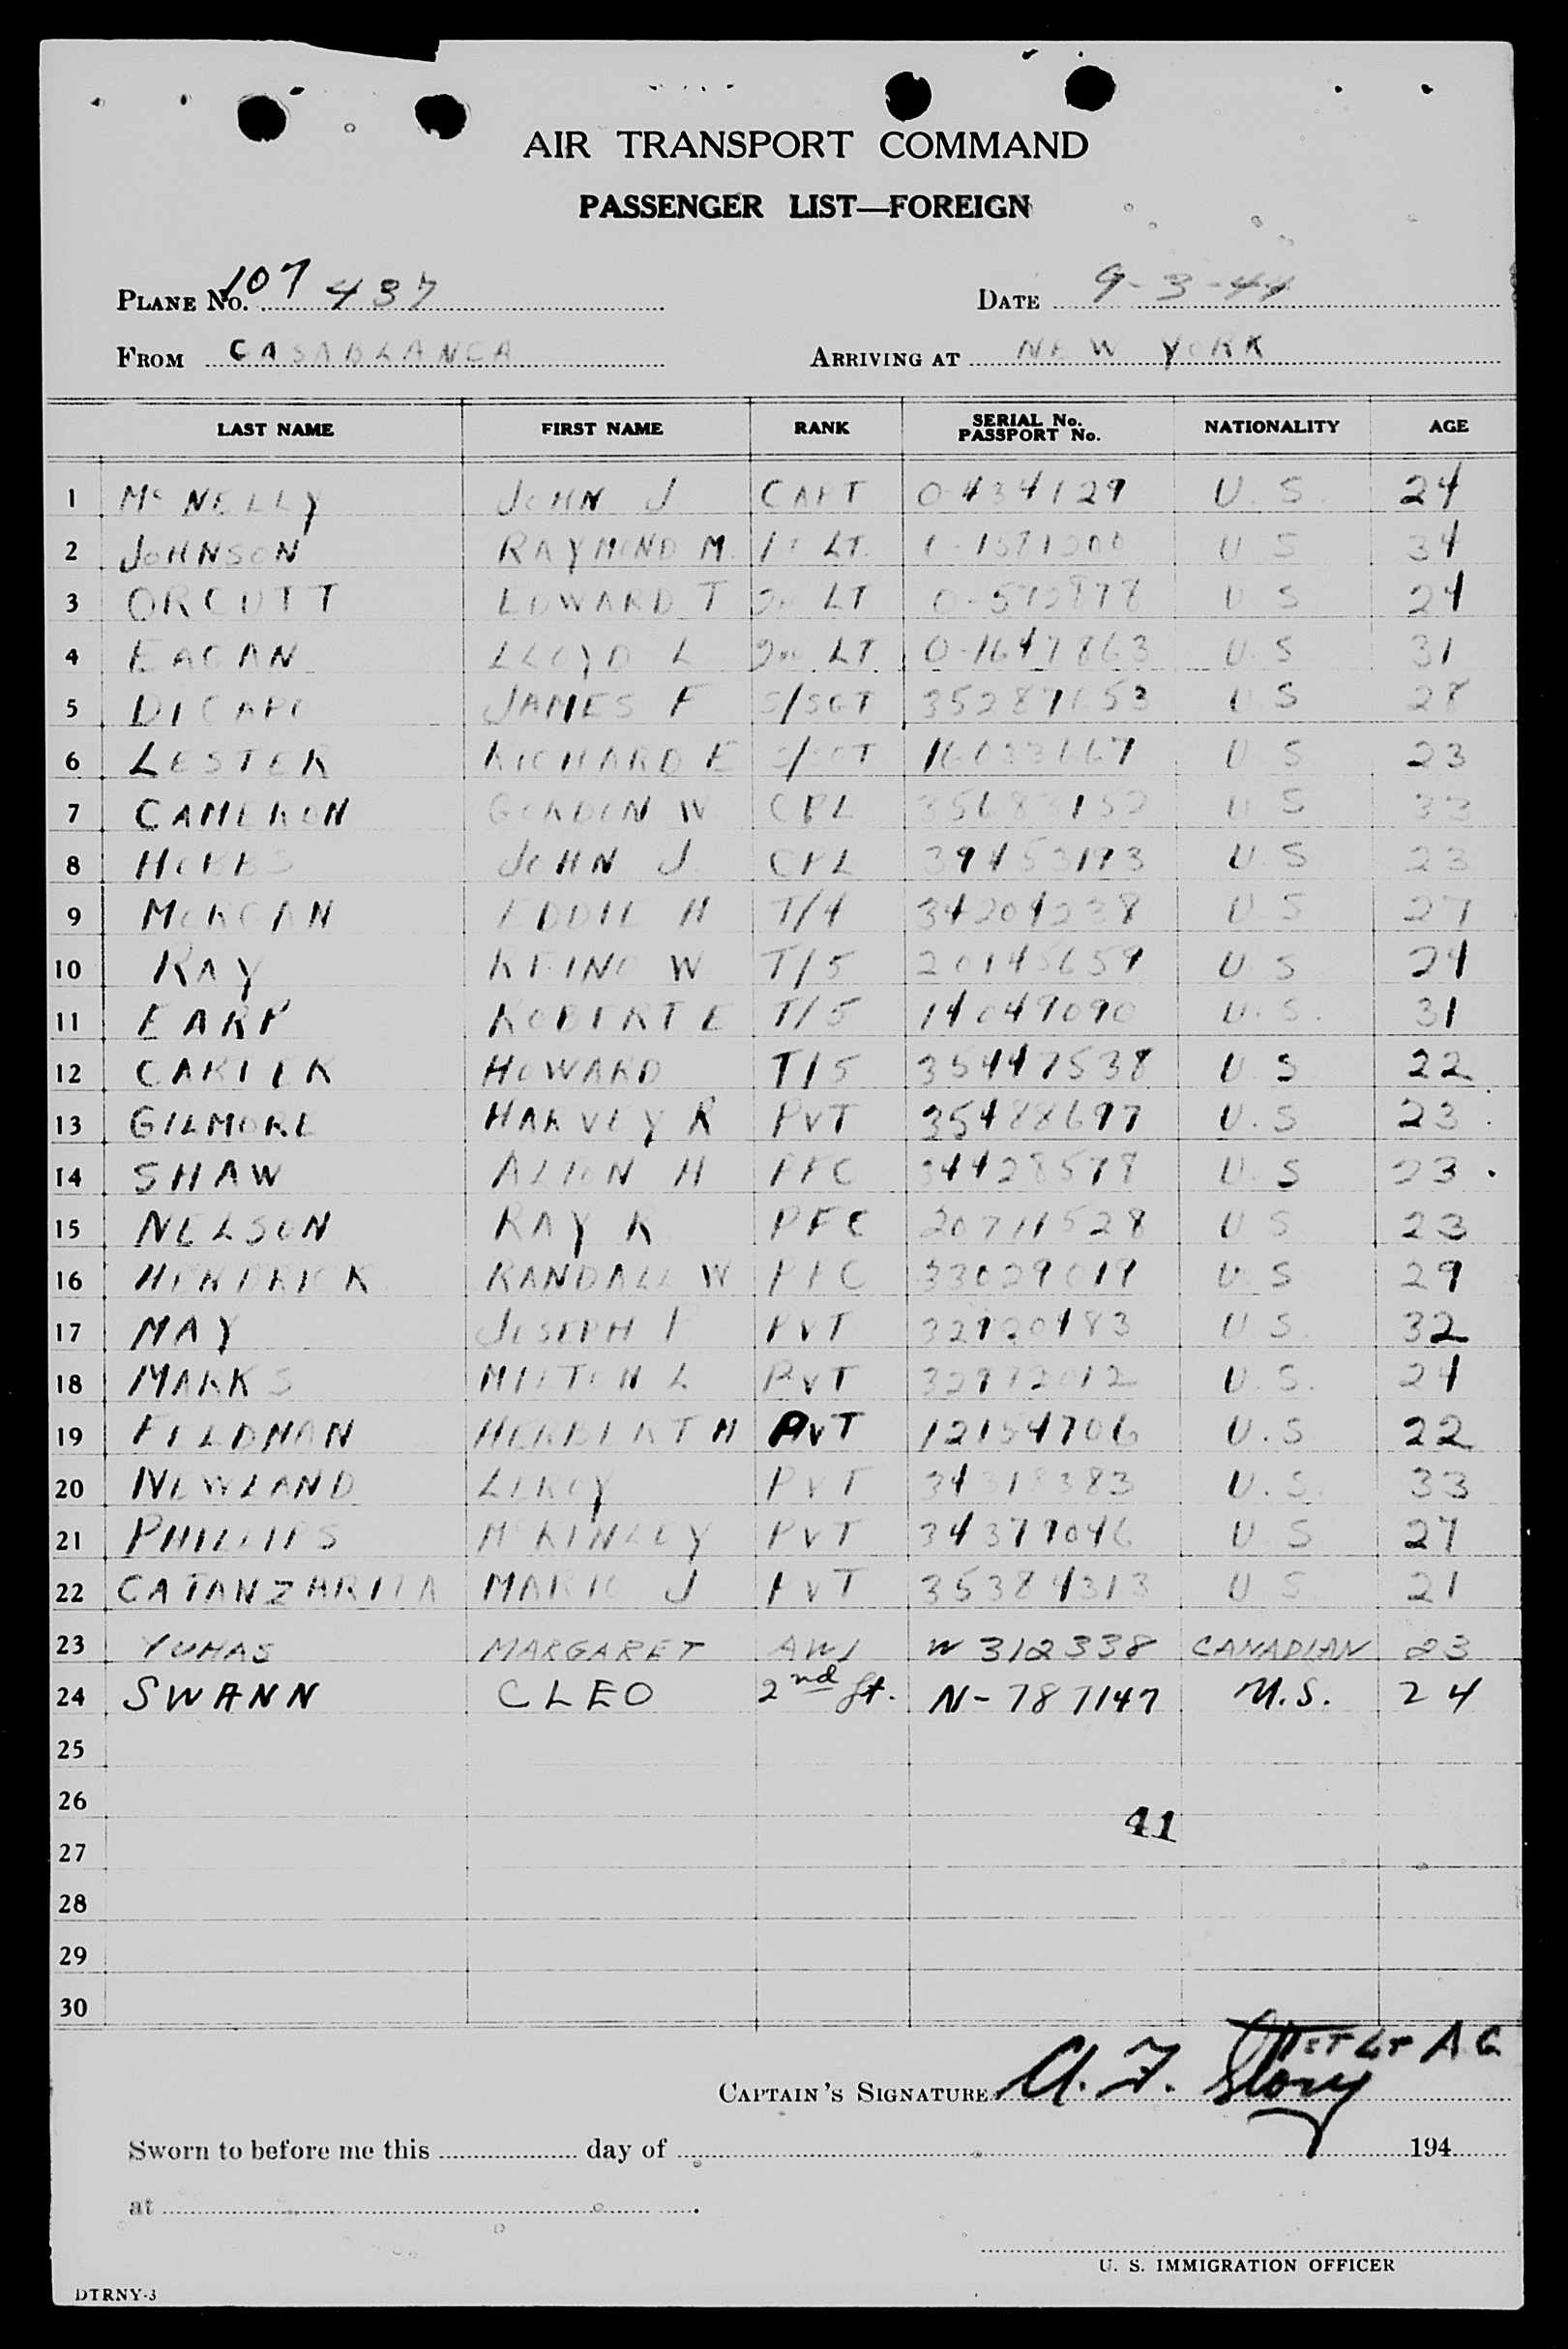 AIR TRANSPORT COMMAND
PASSENGER LIST—FOREIGN
PLANE No. 107 437 DATE 9-3-44
FROM CASABLANCA ARRIVING AT NEW YORK
LAST NAME FIRST NAME RANK SERIAL No. PASSPORT No. NATIONALITY AGE
1 McNELLY JOHN J CAPT 0-434129 U.S. 24
2 JOHNSON RAYMOND M. LT. U S 34
3 ORCUTT EDWARD T LT 0-572878 U S 24
4 EAGAN LLOYD L LT 0-1647863 U.S 31
5 JAMES F S/SGT 35287653 U S 28
6 LESTER RICHARD E S/SGT 16033667 U S 23
7 CAMERON GORDON W CPL 35683152 U S 33
8 HOBBS JOHN J CPL 39453193 U S 23
9 MORGAN EDDIE H T/4 34204238 U S 27
10 RAY REINO W T/5 20145659 U S 24
11 EARP ROBERT E T/5 14049090 U.S. 31
12 CARTER HOWARD T/5 35447538 U S 22
13 GILMORE HARVEY R PVT 35488697 U.S 23
14 SHAW ALTON H PFC 34428578 U.S 23
15 NELSON RAY R PFC 20711528 U S 23
16 HENDRICK RANDALL W PFC 33029019 U S 29
17 MAY JOSEPH P PVT 32920483 U S. 32
18 MARKS MILTON L PVT 32972012 U.S. 24
19 FELDMAN HERBERT M PVT 12154706 U.S 22
20 NEWLAND LEROY PVT 34318383 U.S. 33
21 PHILLIPS McKINLEY PVT 34379046 U S 27
22 CATANZARITA MARIO J PVT 35384313 U S 21
23 YUHAS MARGARET W 312338 CANADIAN 23
24 SWANN CLEO 2nd Lt. N-787147 U.S. 24
25
26
41
27
28
29
30
1ST LT A.C.
CAPTAIN'S SIGNATURE A. F. Story
Sworn to before me this day of 194
at
U. S. IMMIGRATION OFFICER
DTRNY-3